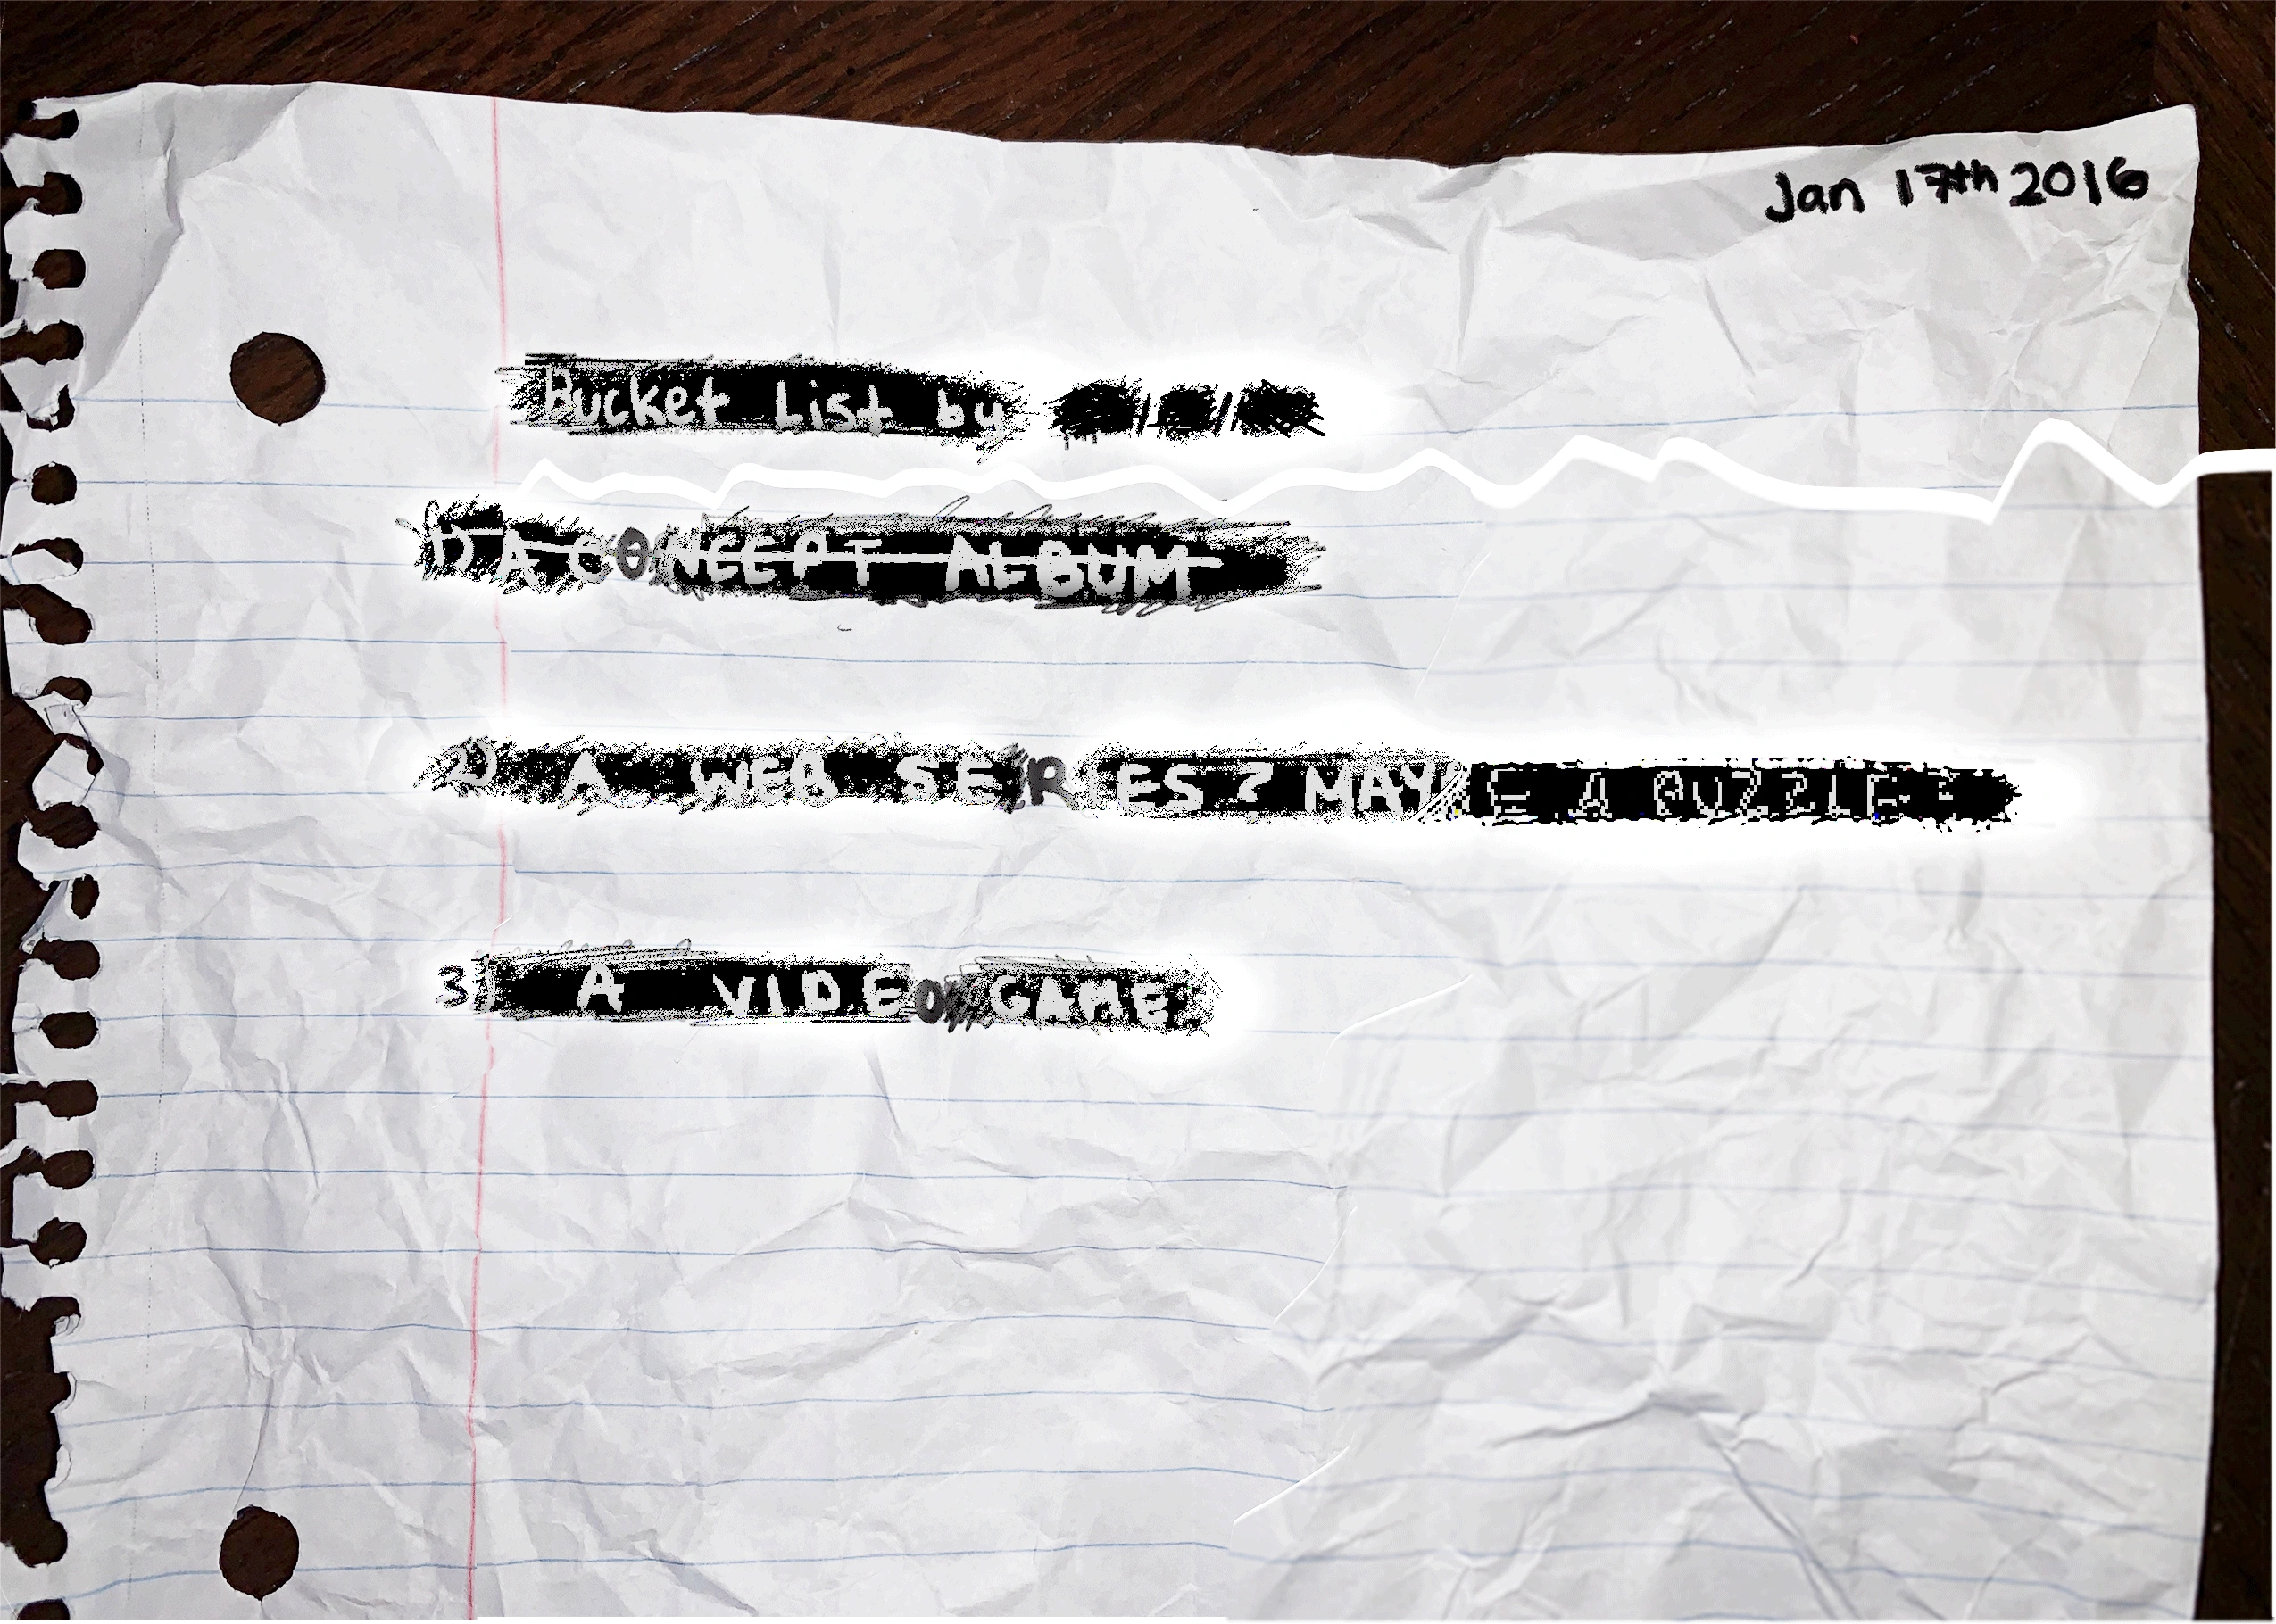 Jan 17th 2016
Bucket List by
1) A CONCEPT ALBUM
2) A WEB SERIES? MAYBE A PUZZLE?
3) A VIDEO GAME?